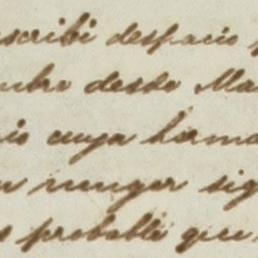 scribi despacio
desde Ma
cuya herma
muger sig
probable que